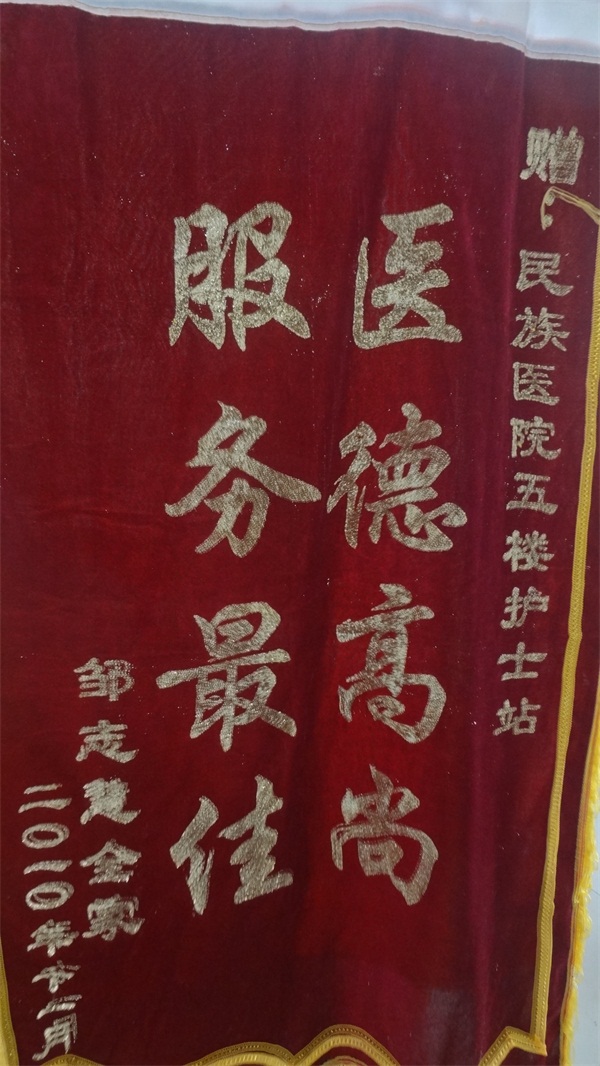 赠：民族医院五楼护士站
医德高尚
服务最佳
邹志慧全家
二〇一〇年十一月